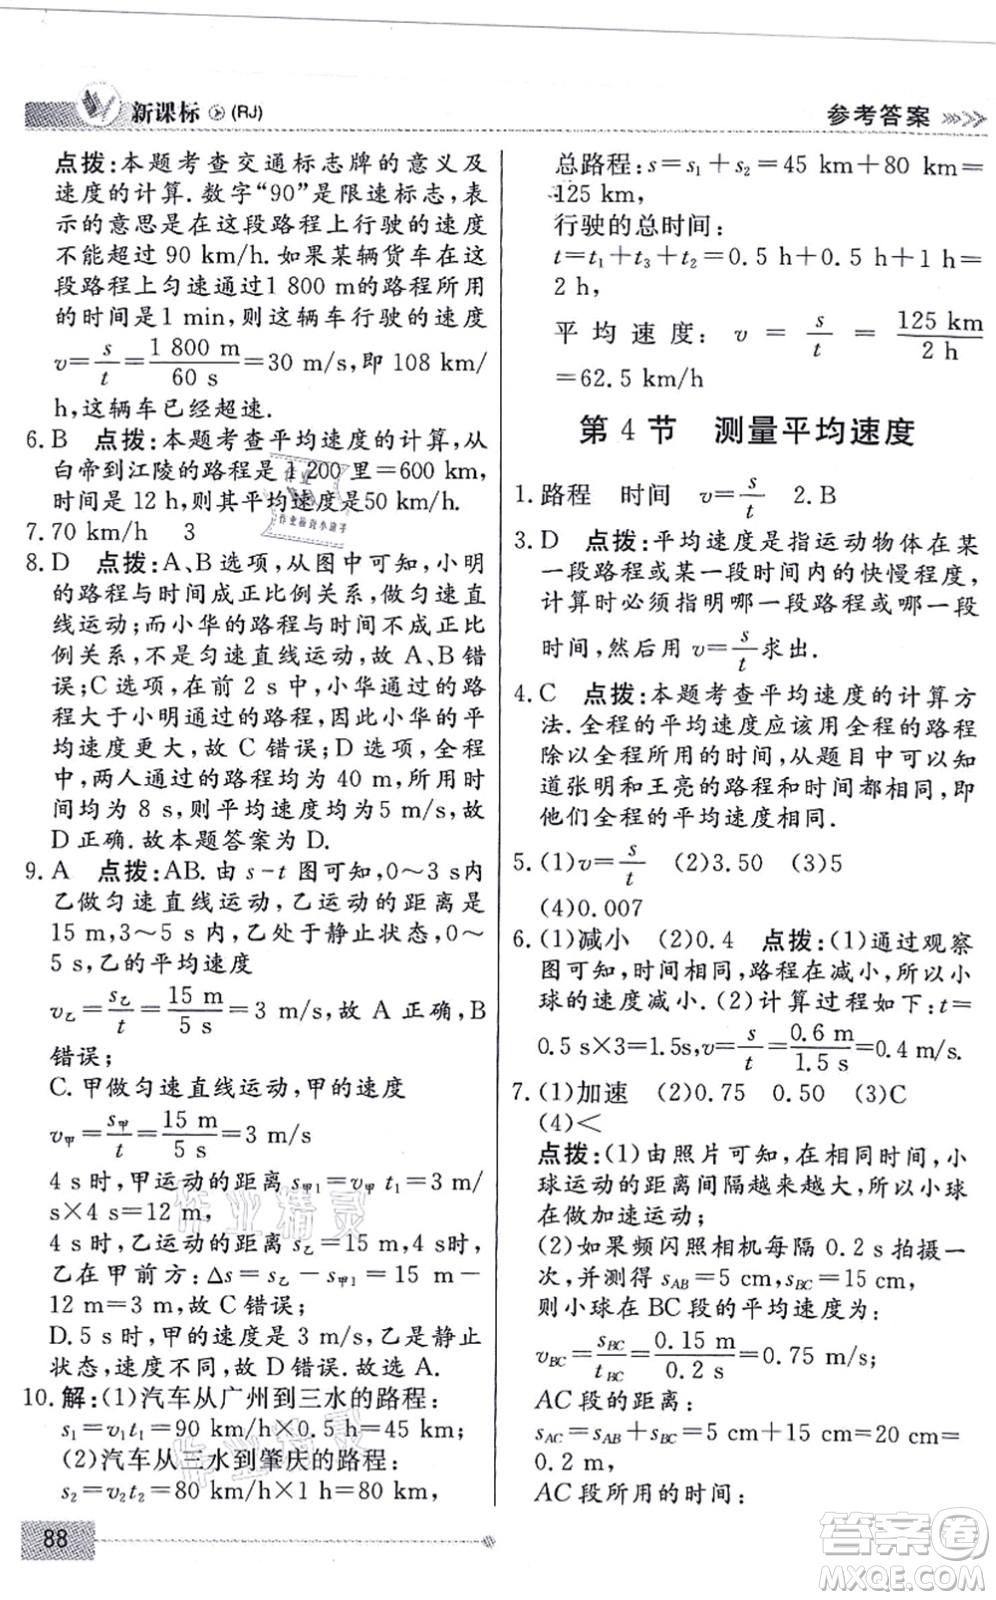 新课标 (RJ)
参考答案
点拨:本题考查交通标志牌的意义及
速度的计算.数字“90”是限速标志,表
示的意思是在这段路程上行驶的速度
不能超过 90 km/h.如果某辆货车在这
段路程上匀速通过1 800 m的路程所用
的时间是1 min,则这辆车行驶的速度
v=s/t=1 800 m/60 s=30 m/s,即 108 km/
h,这辆车已经超速.
6. B 点拨:本题考查平均速度的计算,从
白帝到江陵的路程是 1 200 里=600 km,
时间是 12 h,则其平均速度是50 km/h.
7. 70 km/h 3
8. D 点拨:A、B选项,从图中可知,小明
的路程与时间成正比例关系,做匀速直
线运动;而小华的路程与时间不成正比
例关系,不是匀速直线运动,故 A、B 错
误;C 选项,在前 2 s 中,小华通过的路
程大于小明通过的路程,因此小华的平
均速度更大,故 C 错误;D 选项,全程
中,两人通过的路程均为 40 m,所用时
间均为 8 s,则平均速度均为5 m/s,故
D 正确.故本题答案为 D.
9. A 点拨:AB.由 s-t 图可知,0～3 s内
乙做匀速直线运动,运动的距离是
15 m,3～5 s内,乙处于静止状态,0～
5 s,乙的平均速度
v乙=s乙/t=15 m/5 s=3 m/s,故 A 正确,B
错误;
C.甲做匀速直线运动,甲的速度
v甲=s甲/t=15 m/5 s=3 m/s
4 s 时,甲运动的距离 s甲1=v甲 t1=3 m/
s×4 s=12 m,
4 s 时,乙运动的距离 s乙=15 m,4 s时,
乙在甲前方:Δs=s乙-s甲1=15 m-
12 m=3 m,故 C 错误;
D. 5 s 时,甲的速度是 3 m/s,乙是静止
状态,速度不同,故 D 错误.故选 A.
10. 解:(1)汽车从广州到三水的路程:
s1=v1t1=90 km/h×0.5 h=45 km,
(2)汽车从三水到肇庆的路程:
s2=v2t2=80 km/h×1 h=80 km,
88
总路程:s=s1+s2=45 km+80 km=
125 km,
行驶的总时间:
t=t1+t3+t2=0.5 h+0.5 h+1 h=
2 h,
平均速度: v = s/t = 125 km/2 h
=62.5 km/h
第 4 节 测量平均速度
1. 路程 时间 v=s/t 2. B
3. D 点拨:平均速度是指运动物体在某
一段路程或某一段时间内的快慢程度,
计算时必须指明哪一段路程或哪一段
时间,然后用 v=s/t求出.
4. C 点拨:本题考查平均速度的计算方
法.全程的平均速度应该用全程的路程
除以全程所用的时间,从题目中可以知
道张明和王亮的路程和时间都相同,即
他们全程的平均速度相同.
5. (1)v=s/t (2)3.50 (3)5
(4)0.007
6. (1)减小 (2)0.4 点拨:(1)通过观察
图可知,时间相同,路程在减小,所以小
球的速度减小.(2)计算过程如下:t=
0.5 s×3=1.5s,v=s/t=0.6 m/1.5 s=0.4 m/s.
7. (1)加速 (2)0.75 0.50 (3)C
(4)<
点拨:(1)由照片可知,在相同时间,小
球运动的距离间隔越来越大,所以小球
在做加速运动;
(2)如果频闪照相机每隔 0.2 s 拍摄一
次,并测得 sAB=5 cm,sBC=15 cm,
则小球在 BC 段的平均速度为:
vBC=sBC/tBC=0.15 m/0.2 s=0.75 m/s;
AC 段的距离:
sAC=sAB+sBC=5 cm+15 cm=20 cm=
0.2 m,
AC 段所用的时间:
作业精灵
作业精灵
作业
作业检查小助手
答案圈
MXQE.COM